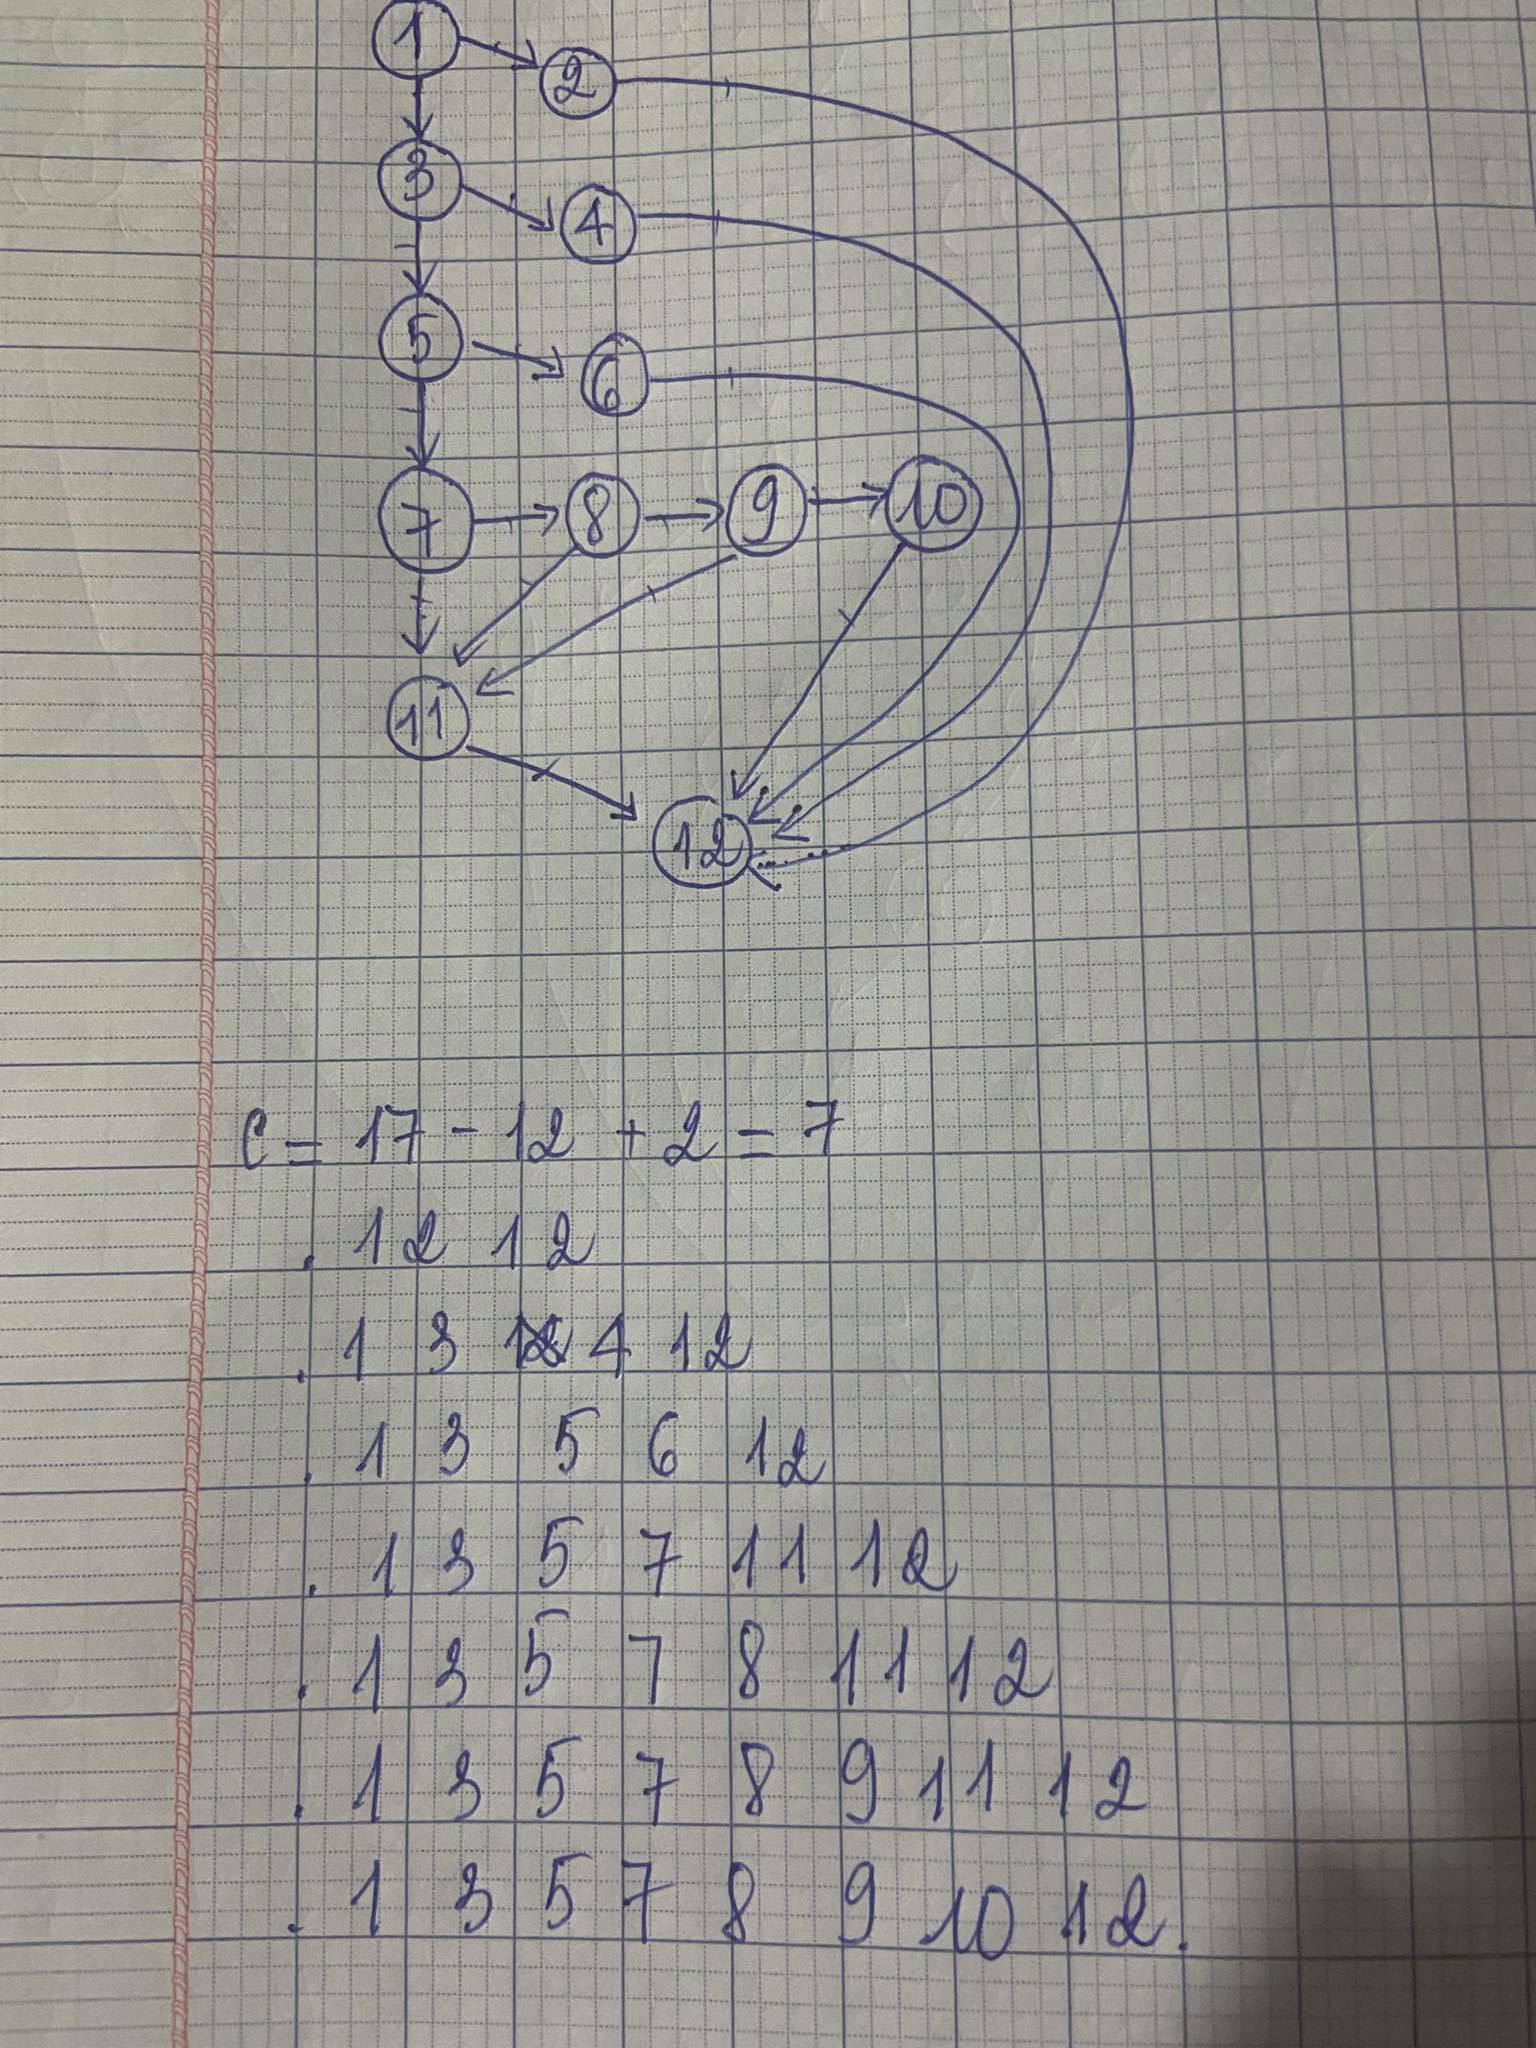 1
2
3
4
5
6
7 8 9 10
11
12
C = 17 - 12 + 2 = 7
. 1 2 12
. 1 3 4 12
. 1 3 5 6 12
. 1 3 5 7 11 12
. 1 3 5 7 8 11 12
. 1 3 5 7 8 9 11 12
. 1 3 5 7 8 9 10 12.